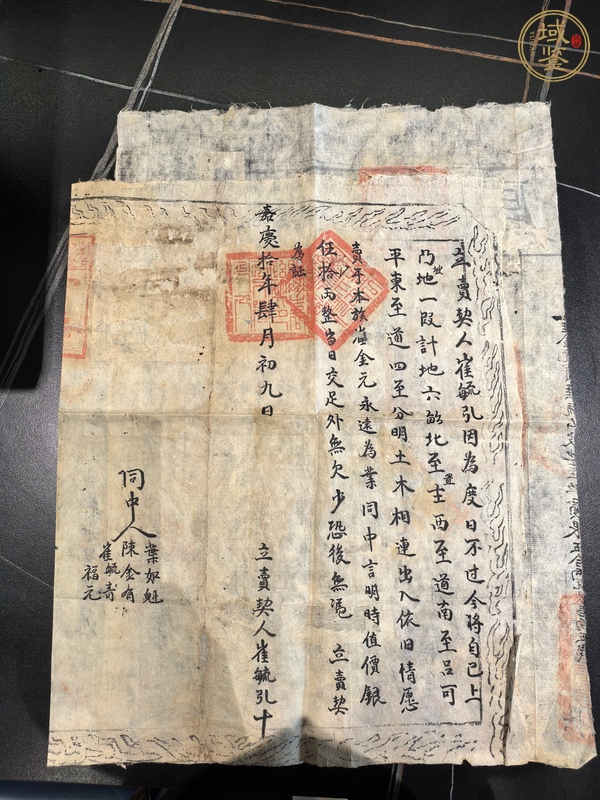 立賣契人崔毓弘因為度日不过今將自己上
凸坡地一段計地六畝北至置主西至道南至吕可
平東至道四至分明土木相連出入依旧情愿
賣于本族崔金元永遠為業同中言明時值價銀
伍拾両整当日交足外無欠少恐後無凴立賣契
為証
嘉慶拾年肆月初九日
立賣契人崔毓弘十
同中人
葉如魁
陳金有
崔毓青
福元
域鉴